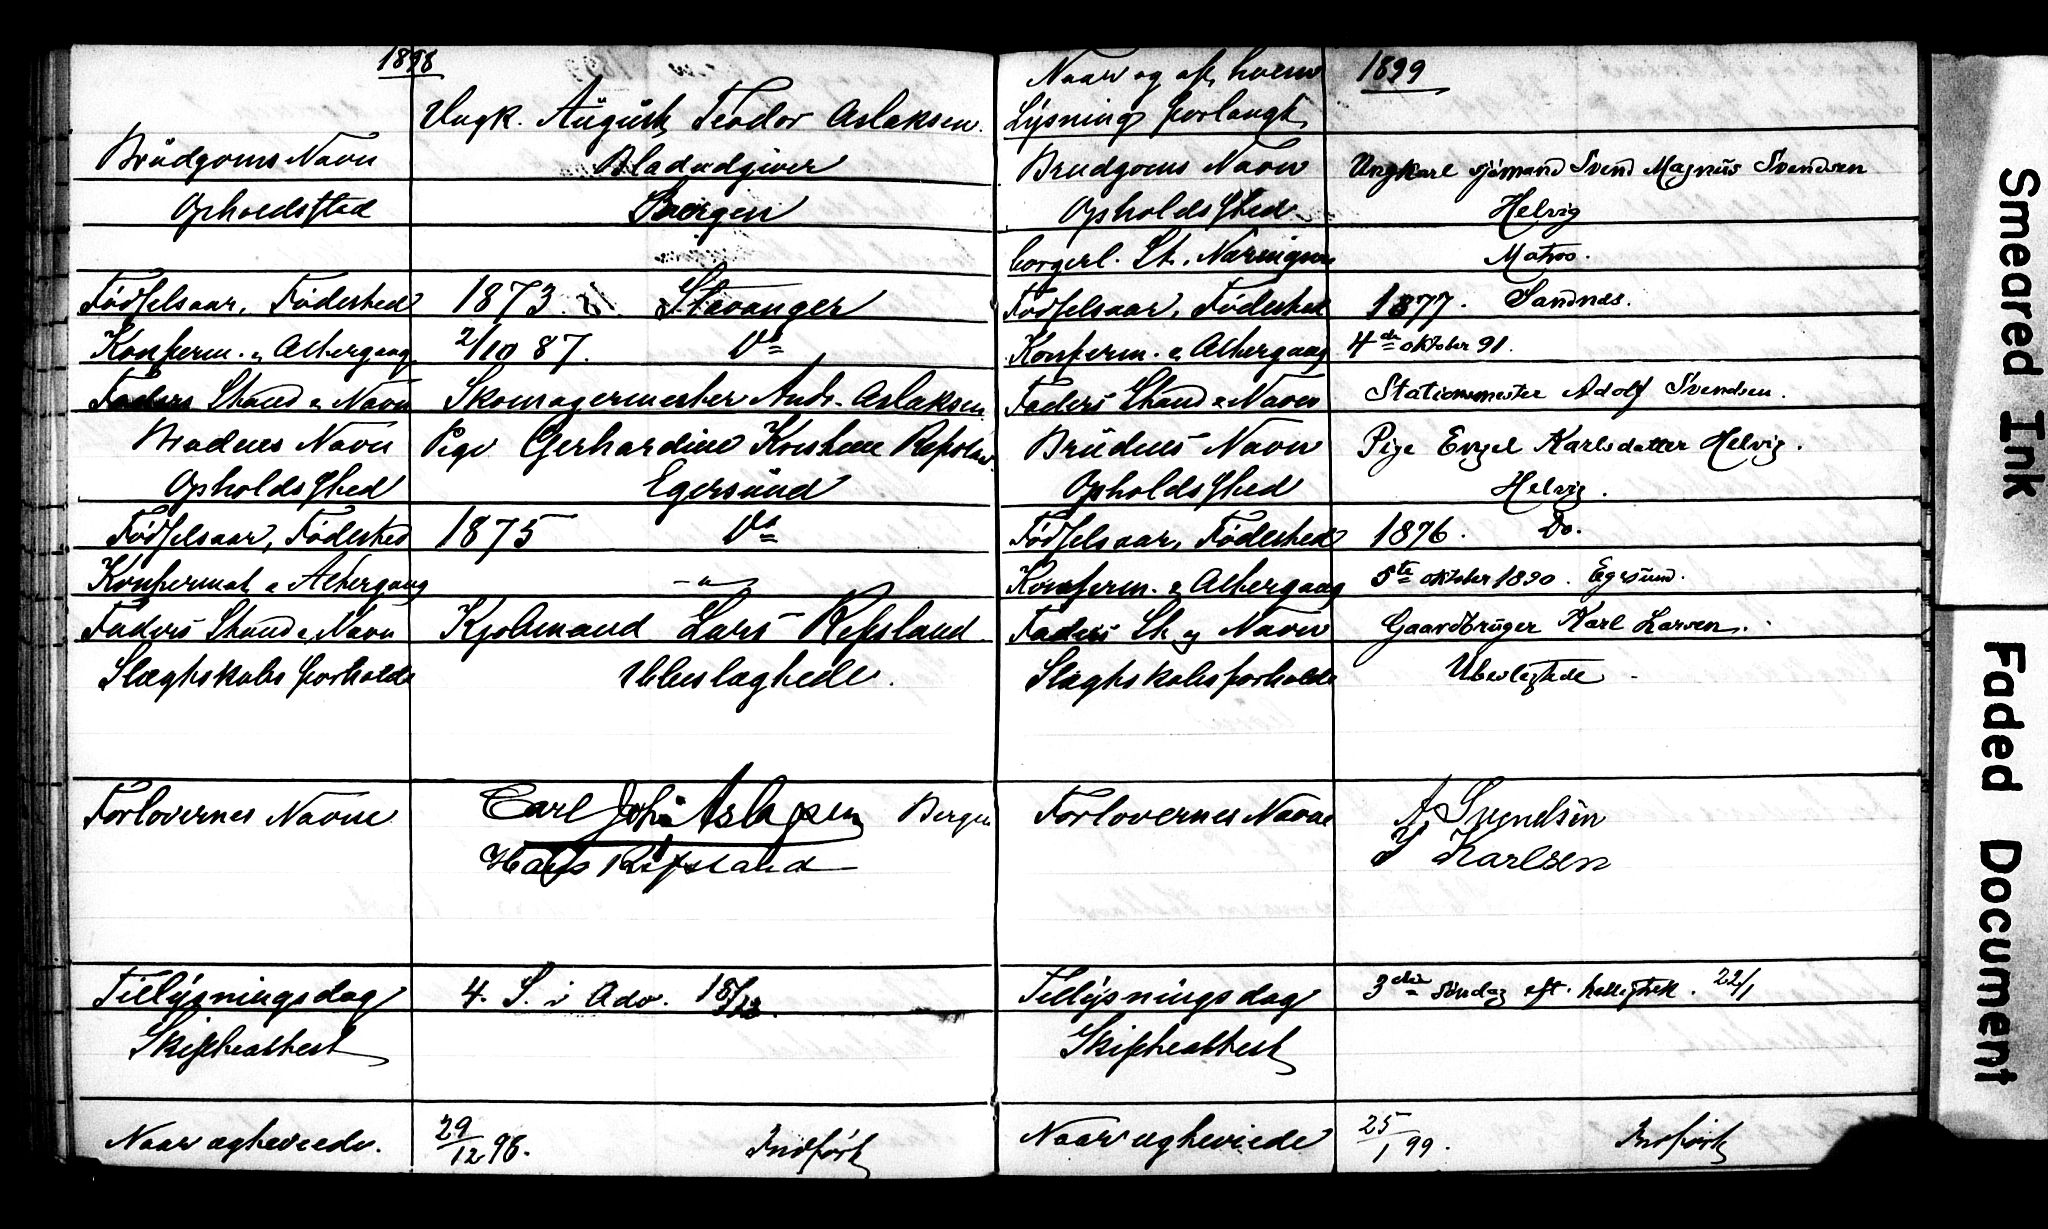 1898
Ungk. August Teodor Aslaksen.
Brudgoms Navn Bladudgiver
Opholdssted Bergen
Fødselsaar, Fødested 1873. Stavanger
Konferm. & Altergang 2/10 87. Do
Faders Stand & Navn Skomagermester Andr. Aslaksen
Brudens Navn Pige Gerhardine Refsland
Opholdssted Egersund
Fødselsaar, Fødested 1875 Do
Konfermat & Altergang - " -
Faders Stand & Navn Lars Refsland
Slægtskabsforholde Ubeslægtede.
Forlovernes Navne Carl Johan Aslaksen Bergen
Refsland
Tillysningsdag 4. S. i Adv. 18/12.
Skifteattest
Naar ægteviede. 29/12 98. Indført
Naar og af hvem 1899
Lysning forlangt
Brudgoms Navn Ungkarl sjømand Svend Magnus Svendsen
Opholdssted Helvig
borgerl. St. Næringsv Matros.
Fødselsaar, Fødested 1877. Sandnes.
Konferm. & Altergang 4de oktober 91.
Faders Stand & Navn Stationsmester Adolf Svendsen.
Brudens Navn Pige Engel Karlsdatter Helvig.
Opholdssted Helvig.
Fødselsaar, Fødested 1876. Do.
Konferm. & Altergang 5te oktober 1890. Egersund.
Faders St. og Navn Gaardbruger Karl Larsen.
Slægtskabsforholde Ubeslegtede
Forlovernes Navne A Svendsen
Karlsen
Tillysningsdag 3die søndag eft. helligtrek. 22/1
Skifteattest
Naar ægteviede 25/1 99. Indført
Smeared Ink
Faded Document